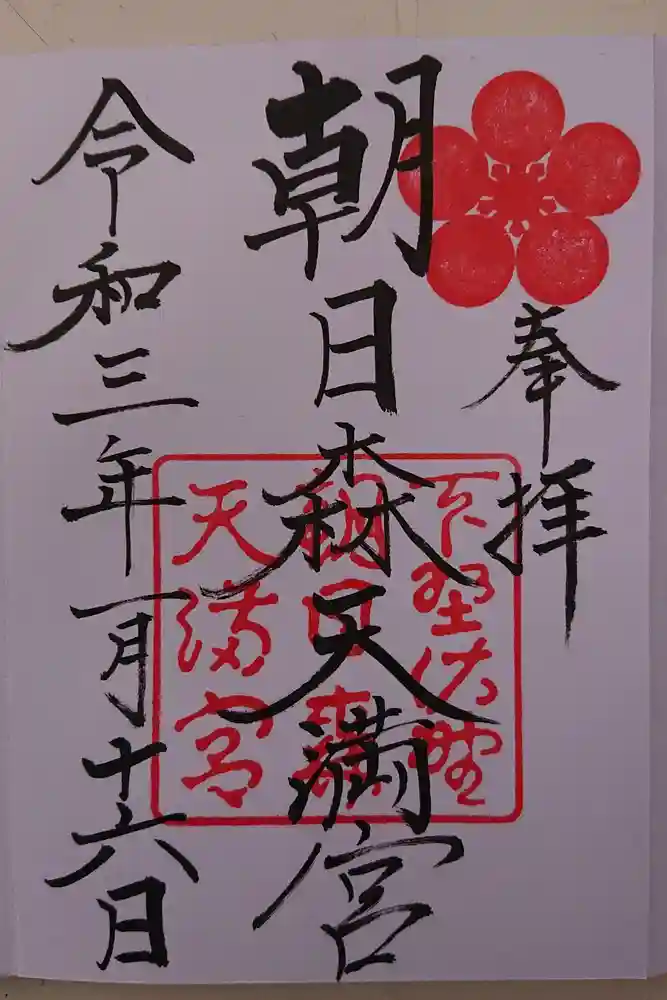 奉拝
朝日森天満宮
下野佐野
朝日森
天満宮
令和三年一月十六日